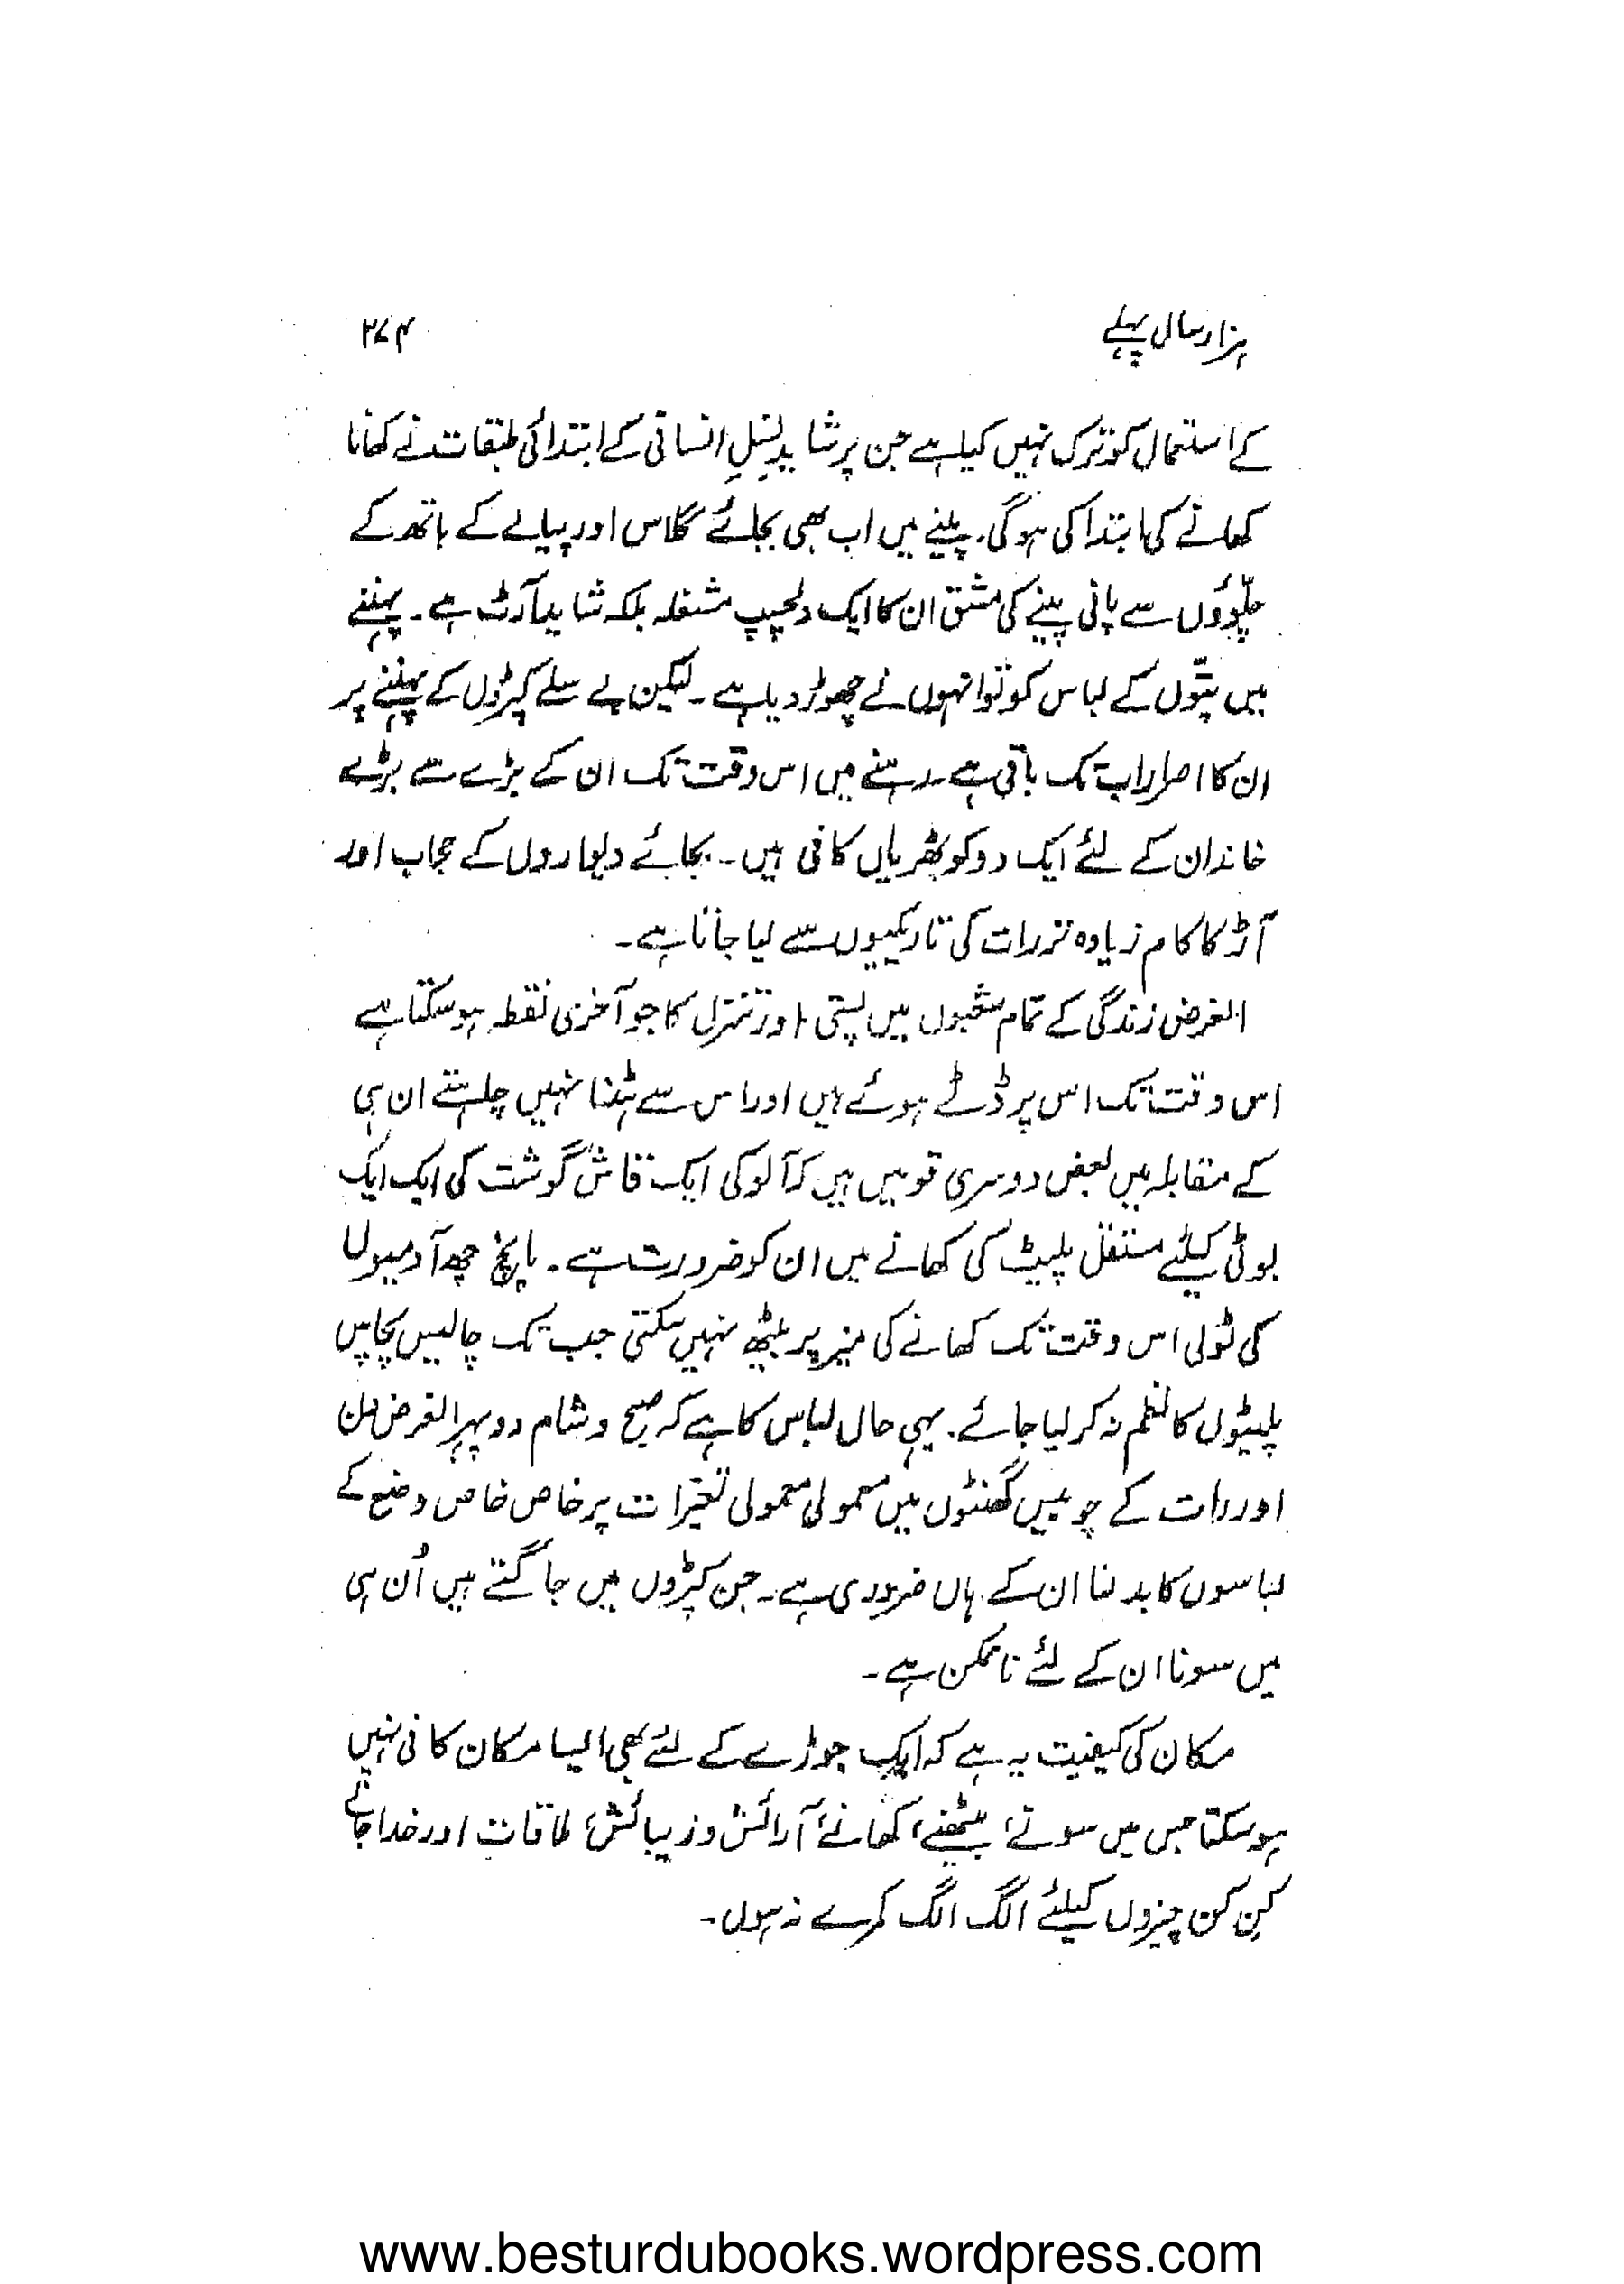 ہزار سال پہلے
۲۷۴
کے استعمال کو ترک نہیں کیا ہے جن پر شاید نسلِ انسانی کے ابتدائی طبقات نے کھانا
کھانے کی ابتدا کی ہوگی۔ پینے میں اب بھی بجائے گلاس اور پیالے کے ہاتھ کے
چلّوؤں سے پانی پینے کی مشق ان کا ایک دلچسپ مشغلہ بلکہ شاید آرٹ ہے۔ پہننے
میں پتّوں کے لباس کو تو انہوں نے چھوڑ دیا ہے۔ لیکن بے سلے کپڑوں کے پہننے پر
ان کا اصرار اب تک باقی ہے۔ رہنے میں اس وقت تک ان کے بڑے سے بڑے
خاندان کے لئے ایک دو کوٹھریاں کافی ہیں۔ بجائے دیواروں کے حجاب اور
آڑ کا کام زیادہ تر رات کی تاریکیوں سے لیا جاتا ہے۔
الغرض زندگی کے تمام شعبوں میں پستی اور تنزل کا جو آخری نقطہ ہو سکتا ہے
اس وقت تک اس پر ڈٹے ہوئے ہیں اور اس سے ہٹنا نہیں چاہتے ان ہی
کے مقابلہ میں بعض دوسری قومیں ہیں کہ آلو کی ایک قاش گوشت کی ایک ایک
بوٹی کیلئے مستقل پلیٹ کی کھانے میں ان کو ضرورت ہے۔ پانچ چھ آدمیوں
کی ٹولی اس وقت تک کھانے کی میز پر بیٹھ نہیں سکتی جب تک چالیس پچاس
پلیٹوں کا نظم نہ کر لیا جائے۔ یہی حال لباس کا ہے کہ صبح و شام دوپہر الغرض دن
اور رات کے چوبیس گھنٹوں میں معمولی معمولی تغیّرات پر خاص خاص وضع کے
لباسوں کا بدلنا ان کے ہاں ضروری ہے۔ جن کپڑوں میں جاگتے ہیں اُن ہی
میں سونا ان کے لئے ناممکن ہے۔
مکان کی کیفیت یہ ہے کہ ایک جوڑے کے لئے بھی ایسا مکان کافی نہیں
ہو سکتا جس میں سونے، بیٹھنے، کھانے، آرائش و زیبائش، ملاقات اور خدا جانے
کِن کن چیزوں کیلئے الگ الگ کمرے نہ ہوں۔
www.besturdubooks.wordpress.com